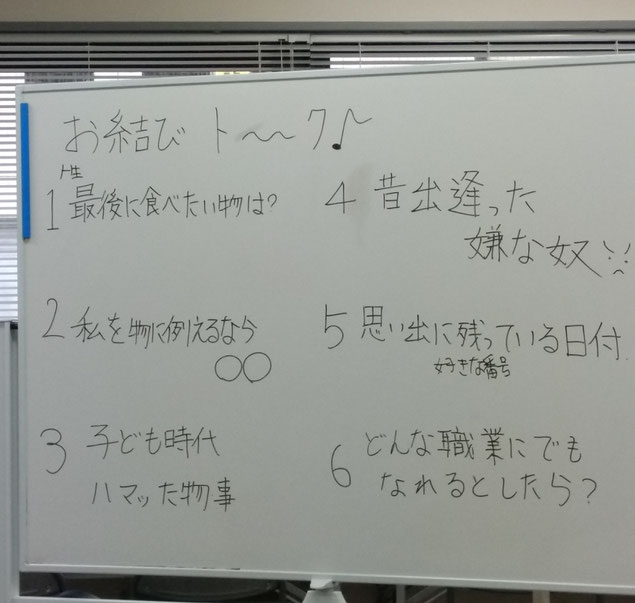 お結び ト〜〜ク♪
人生
1 最後に食べたい物は?
2 私を物に例えるなら
○○
3 子ども時代
ハマッた物事
4 昔出逢った
嫌な奴
5 思い出に残っている日付
好きな番号
6 どんな職業にでも
なれるとしたら?